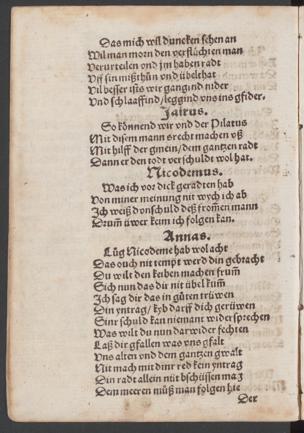 Das mich wil duncken sehen an
Wil man morn den verflüchten man
Verurteilen vnd jm haben radt
Vff sin mißthůn vnd übelthat
Vil besser ists wir gangind nider
Vnd schlaaffind/ leggind vns ins gfider.
Jairus.
So könnend wir vnd der Pilatus
Mit disem mann s recht machen vß
Mit hilff der gmein/ dem gantzen radt
Dann er den todt verschuldt wol hat.
Nicodemus.
Was ich vor dick geradten hab
Von miner meinung nit wych ich ab
Ich weiß d vnschuld deß fromen mann
Drum üwer keim ich folgen kan.
Annas.
Lůg Nicodeme hab wol acht
Das ouch nit tempt werd din gebracht
Du wilt den keiben machen frum
Sich nun das dir nit übel kum
Ich sag dir das in gůten trüwen
Din yntrag/ kyb darff dich gerüwen
Sinr schuld kan niemant widersprechen
Was wilt du nun darwider fechten
Laß dir gfallen was vns gfalt
Vns alten vnd dem gantzen gwalt
Nit mach mit dinr red kein yntrag
Din radt allein nüt bschüssen mag
Dem meeren můß man folgen hie
Der